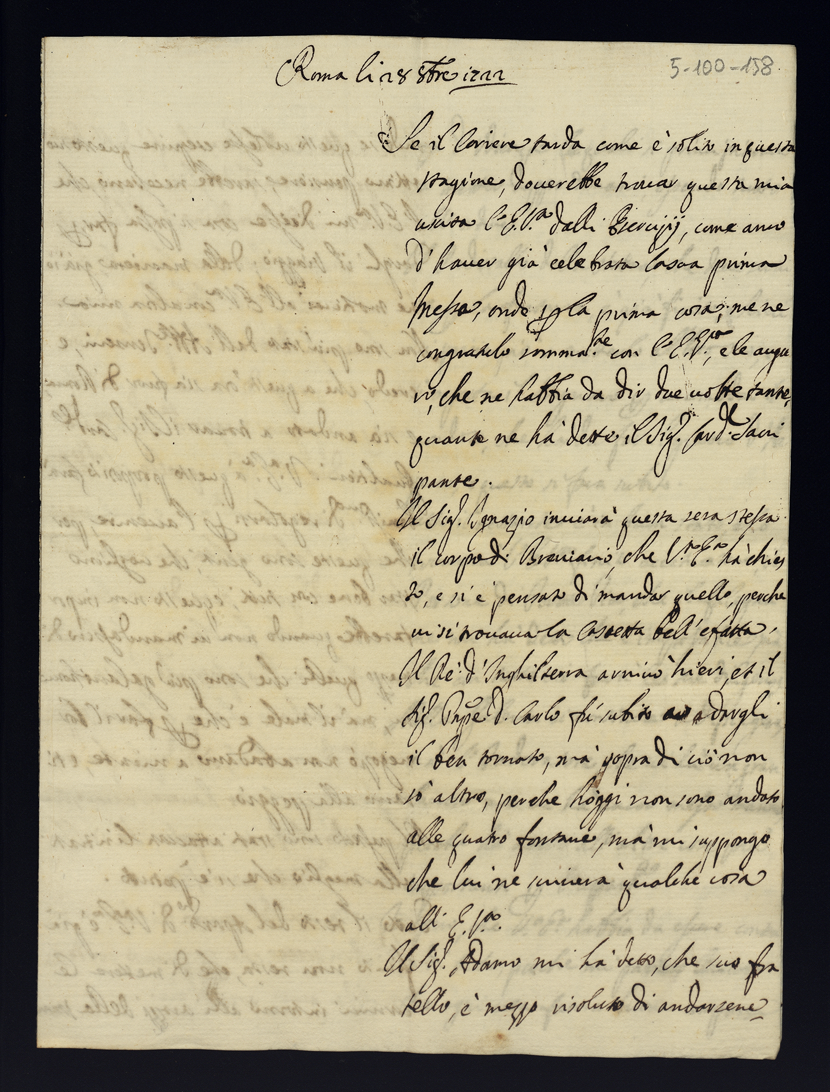 5-100-158
Roma li 28 8bre 1722
Se il Coriere tarda come è solito in questa
stagione, doverebbe trovar questa mia
uscita l'E.V.ra dalli Esercizij, come anco
d'haver già celebrata la sua prima
Messa, onde p la prima cosa, me ne
congratulo somma.te con l'E.V.ra, e le augu
ro, che ne habbia da dir due volte tante,
quante ne hà dette il Sig.r Card.l Sacri
pante.
Il Sig.r Ignazio inviarà questa sera stessa
il corpo di Breviario, che V.ra E.za hà chies
to, e si è pensato di mandar quello, perche
vi si trovava la Cassetta bell'e fatta.
Il Rè d'Inghilterra arrivò hieri, et il
Sig.r Pnpe D. Carlo fù subito a dargli
il ben tornato, mà sopra di ciò non
sò altro, perche hoggi non sono andato
alle quatro fontane, mà mi suppongo
che lui ne scriverà qualche cosa
all' E.V.ra
Il Sig.r Adamo mi hà detto, che suo fra
tello, è mezzo risoluto di andarsene